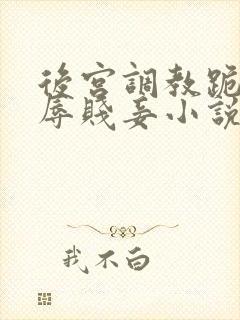 後宮調教跪
辱賤妾小說
我不白